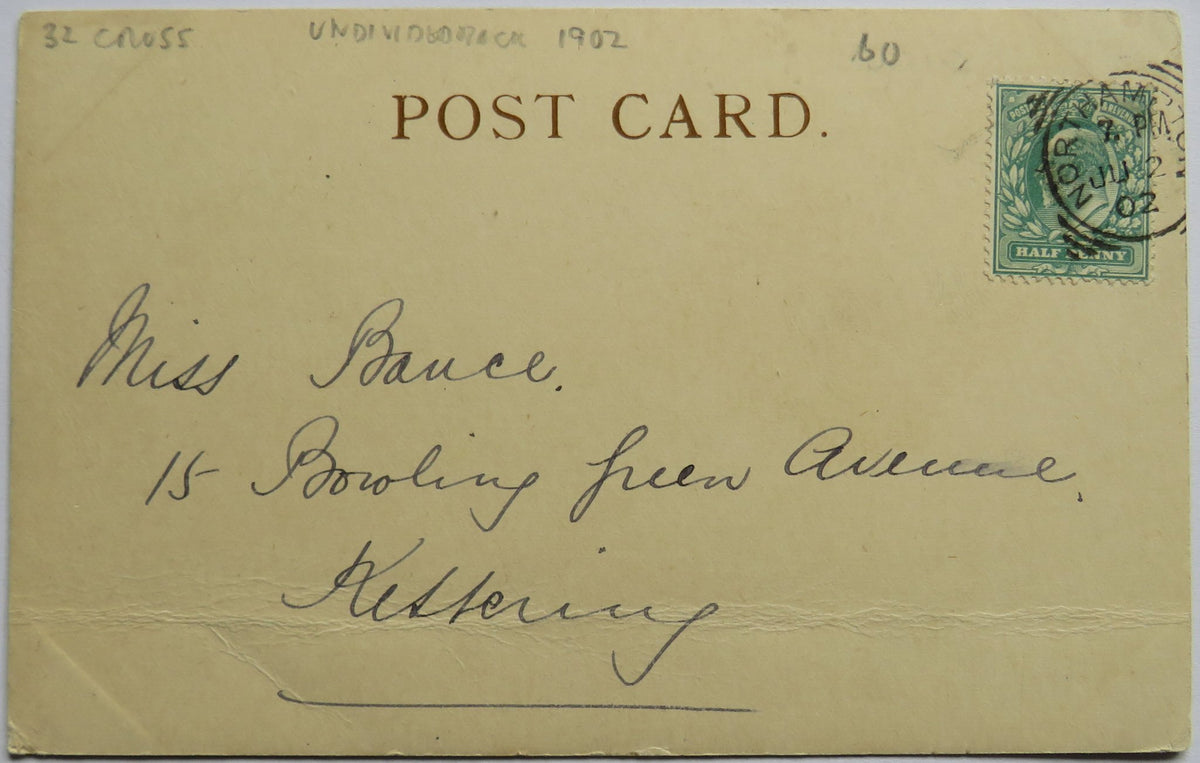 32 CROSS UNDIVIDED BACK 1902 60
POST CARD.
NORTHAMPTON
PM
JU 2
02
HALF PENNY
Miss Bance.
15 Bowling Green Avenue,
Kettering